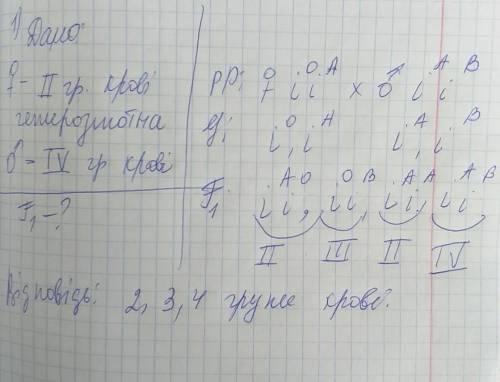 1) Дано:
♀ - II гр. крові
гетерозиготна
♂ - IV гр крові
F₁ - ?
PP: ♀ i^O i^A x ♂ i^A i^B
G: i^O, i^A i^A, i^B
F₁: i^A i^O, i^O i^B, i^A i^A, i^A i^B
II III II IV
Відповідь: 2, 3, 4 групе крові.